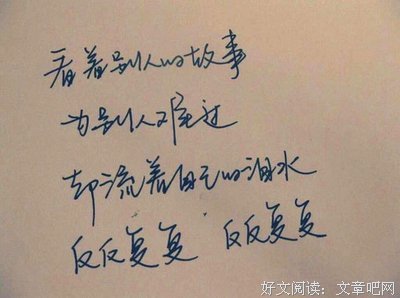 看着别人的故事
为别人难过
却流着自己的泪水
反反复复 反反复复
好文阅读：文章吧网